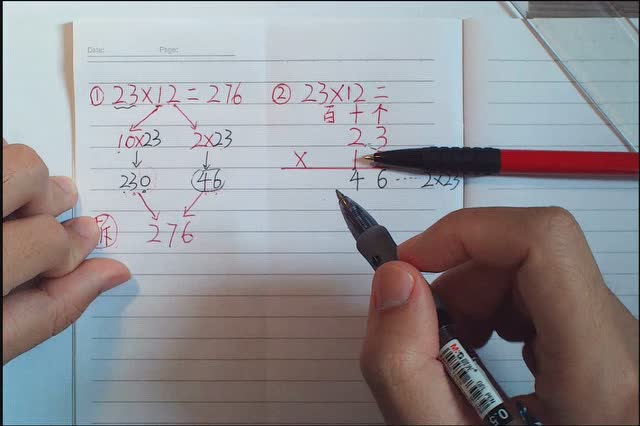 Date:
Page:
① 23×12=276
10×23 2×23
230 46
拆 276
② 23×12=
百 十 个
2 3
× 1
4 6 ······ 2×23
M&G
0.5